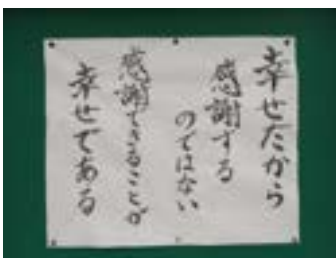 幸せだから
感謝する
のではない
感謝できることが
幸せである